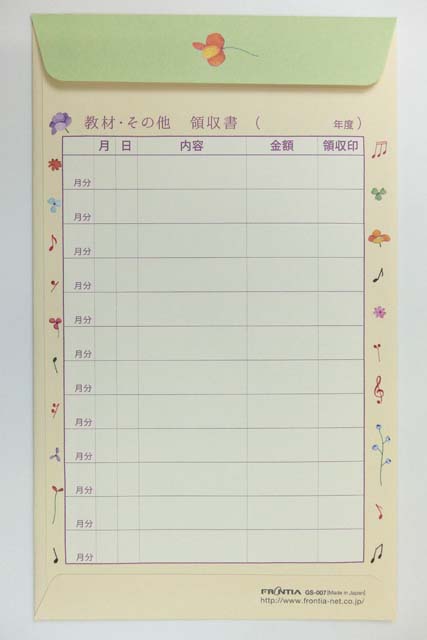 教材・その他 領収書 ( 年度)
月 日 内容 金額 領収印
月分
月分
月分
月分
月分
月分
月分
月分
月分
月分
月分
月分
FRONTIA GS-007 [Made in Japan]
http://www.frontia-net.co.jp/